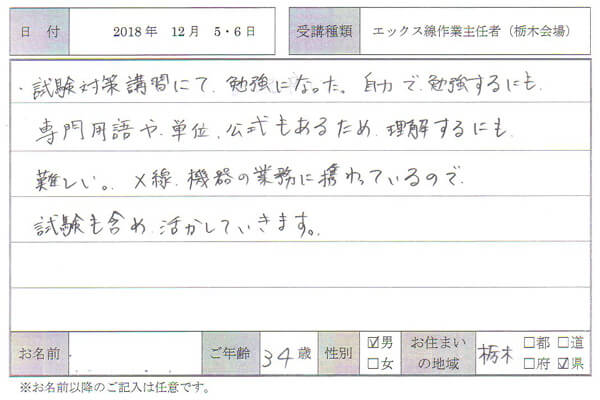 日付 2018年 12月 5・6日 受講種類 エックス線作業主任者（栃木会場）
・試験対策講習にて、勉強になった。自力で、勉強するにも、
専門用語や、単位、公式もあるため、理解するにも、
難しい。X線、機器の業務に携わっているので、
試験も含め、活かしていきます。
お名前 ご年齢 34歳 性別 ☑男 □女 お住まいの地域 栃木 □都 □道 □府 ☑県
※お名前以降のご記入は任意です。